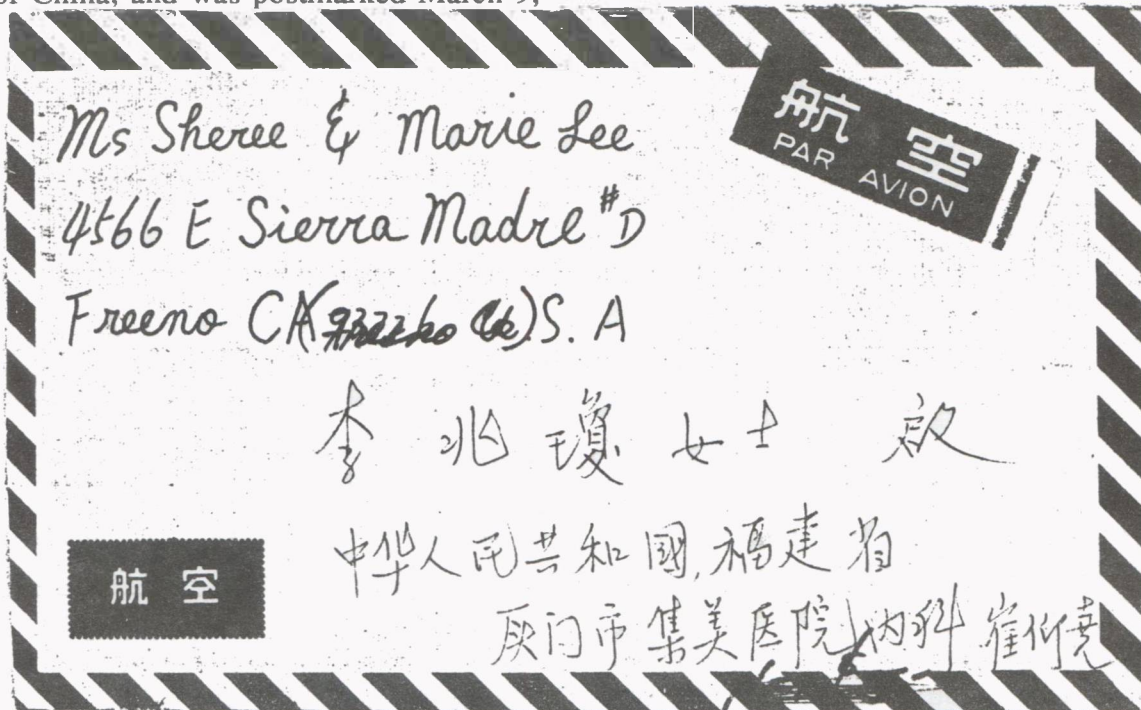 of China, and was postmarked March 9,
航空
PAR AVION
Ms Sheree & Marie Lee
4566 E Sierra Madre #D
Freeno CA S. A
李兆瓊女士 啟
中华人民共和國,福建省
厦门市集美医院内科崔仰尧
航空